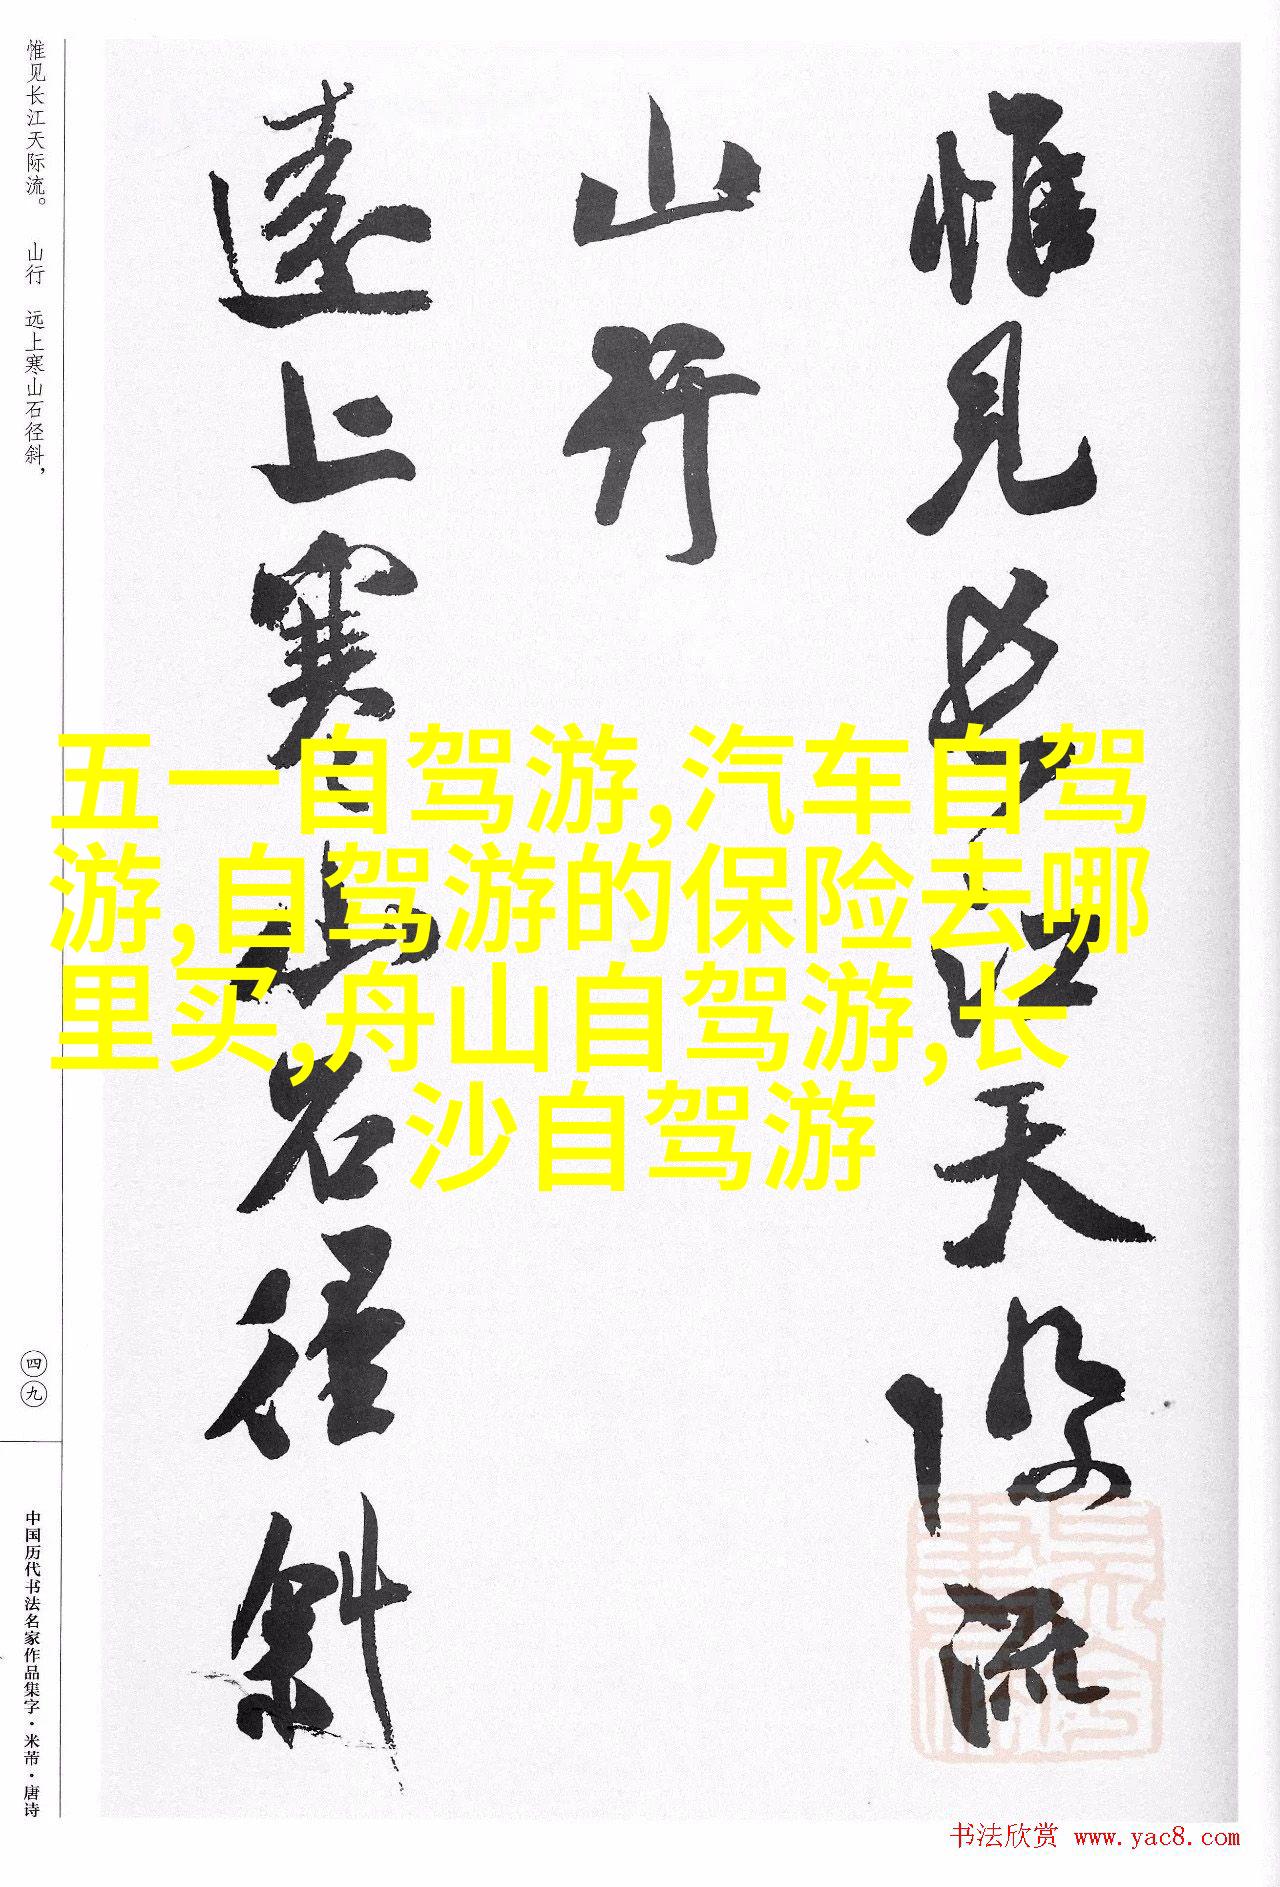 惟见长江天际流。 山行 远上寒山石径斜，
惟見長江天際流
山行
遠上寒山石徑斜
五一自驾游,汽车自驾
游,自驾游的保险去哪
里买,舟山自驾游,长
沙自驾游
四九
中国历代书法名家作品集字·米芾·唐诗
书法欣赏 www.yac8.com